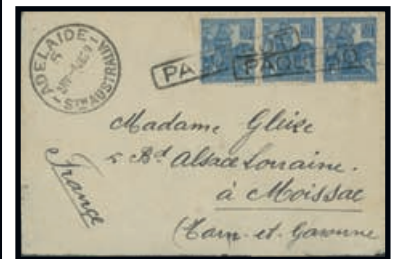 ADELAIDE
STH AUSTRALIA
PAQUEBOT
Madame Gleize
5 Bd Alsace Lorraine.
à Moissac
(Tarn-et-Garonne
France